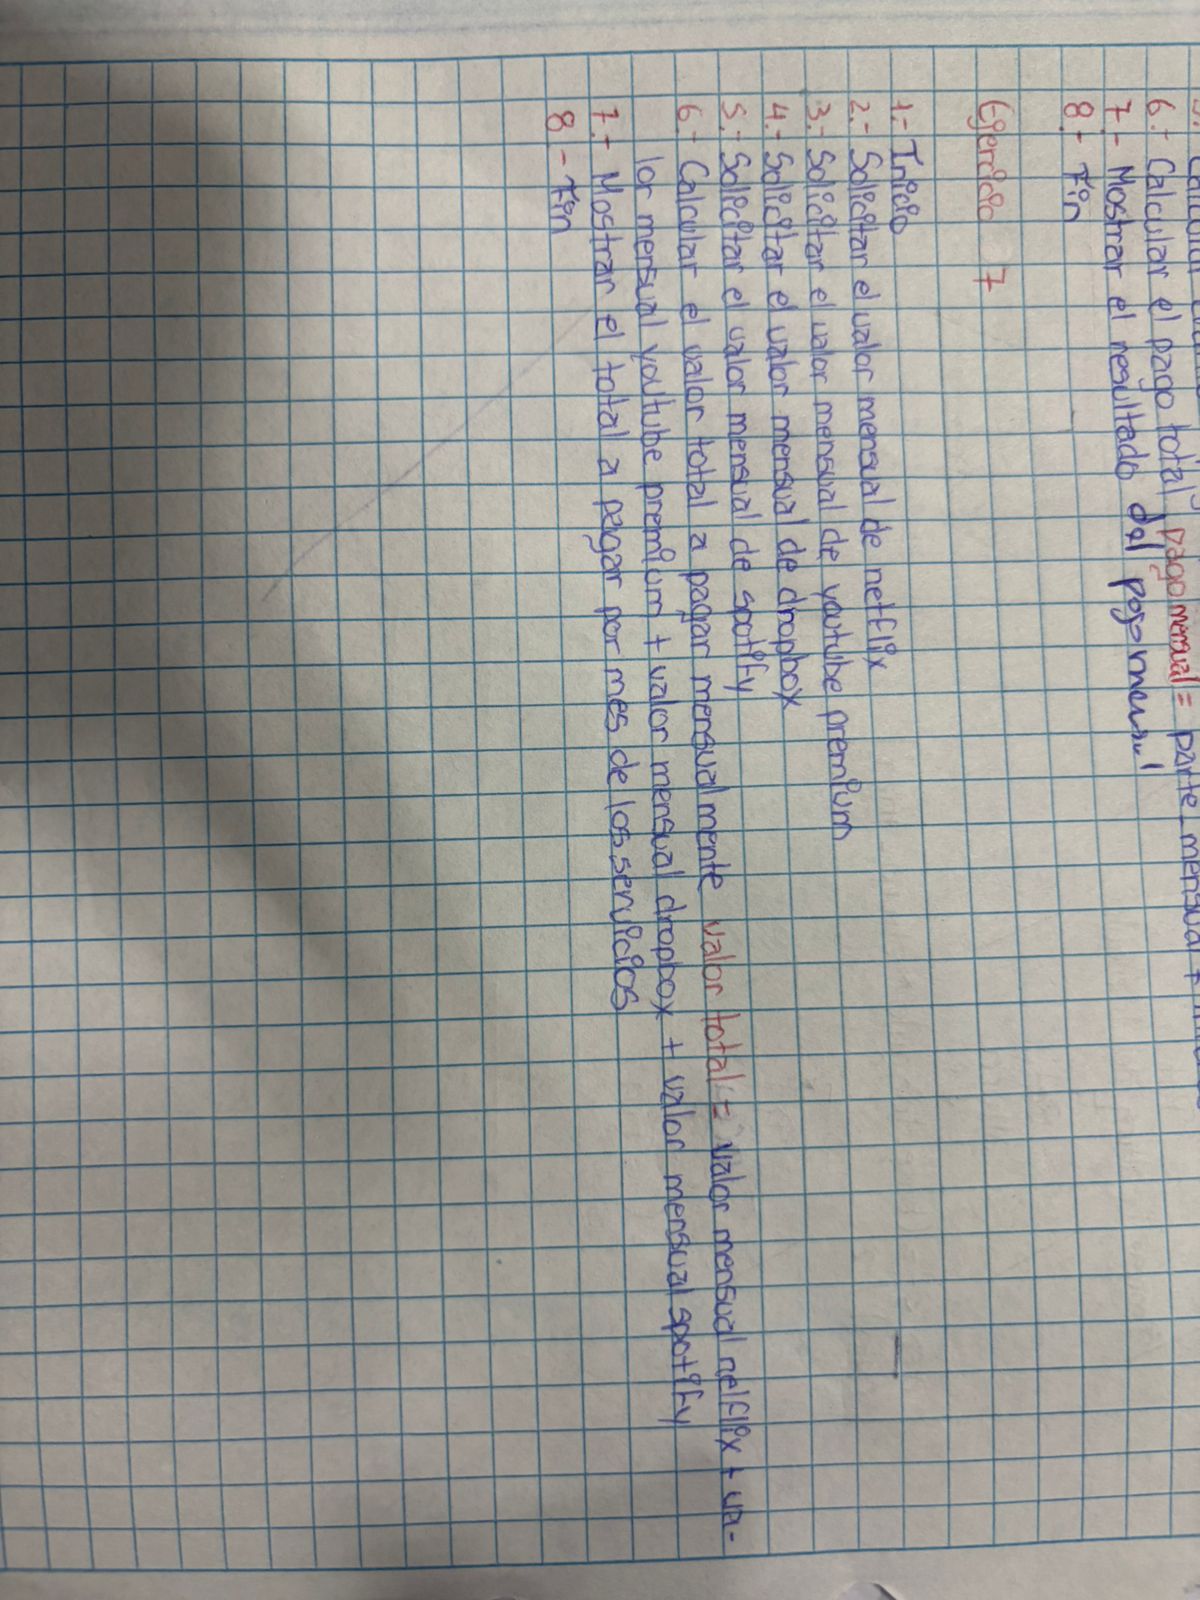 6.- Calcular el pago total pago mensual = parte_mensual +
7.- Mostrar el resultado del pago mensual
8.- Fin
Ejercicio 7
1.- Inicio
2.- Solicitar el valor mensual de netflix
3.- Solicitar el valor mensual de youtube premium
4.- Solicitar el valor mensual de dropbox
5.- Solicitar el valor mensual de spotify
6.- Calcular el valor total a pagar mensualmente valor total = valor mensual netflix + va-
lor mensual youtube premium + valor mensual dropbox + valor mensual spotify
7.- Mostrar el total a pagar por mes de los servicios
8.- Fin